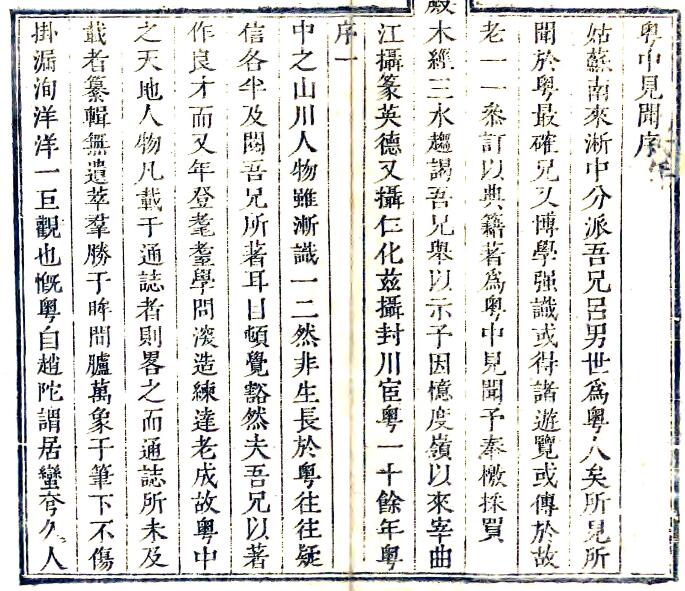 粤中見聞序
姑蘇南來淅中分派吾兄呂男世爲粤人矣所見所
聞於粤最確兄又博學强識或得諸遊覽或傳於故
老一一叅訂以典籍著爲粤中見聞予奉檄採買
殿
木經三水趨謁吾兄舉以示予因憶度嶺以來宰曲
江攝篆英德又攝仁化兹攝封川宦粤一十餘年粤
序一
中之山川人物雖漸識一二然非生長於粤往往疑
信各半及閱吾兄所著耳目頓覺豁然夫吾兄以著
作良才而又年登耄耋學問深造練達老成故粤中
之天地人物凡載于通誌者則畧之而通誌所未及
載者纂輯無遺萃羣勝于眸間臚萬象于筆下不傷
掛漏洵洋洋一巨觀也慨粤自趙陀謂居蠻夸久人